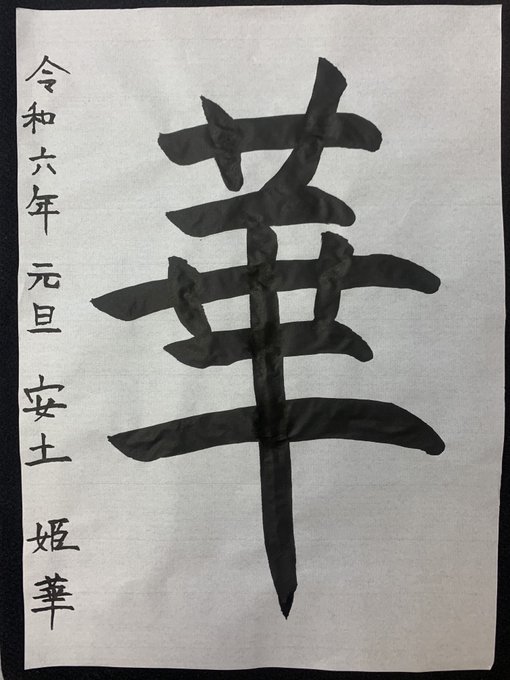 華
令和六年 元旦 安土 姫華